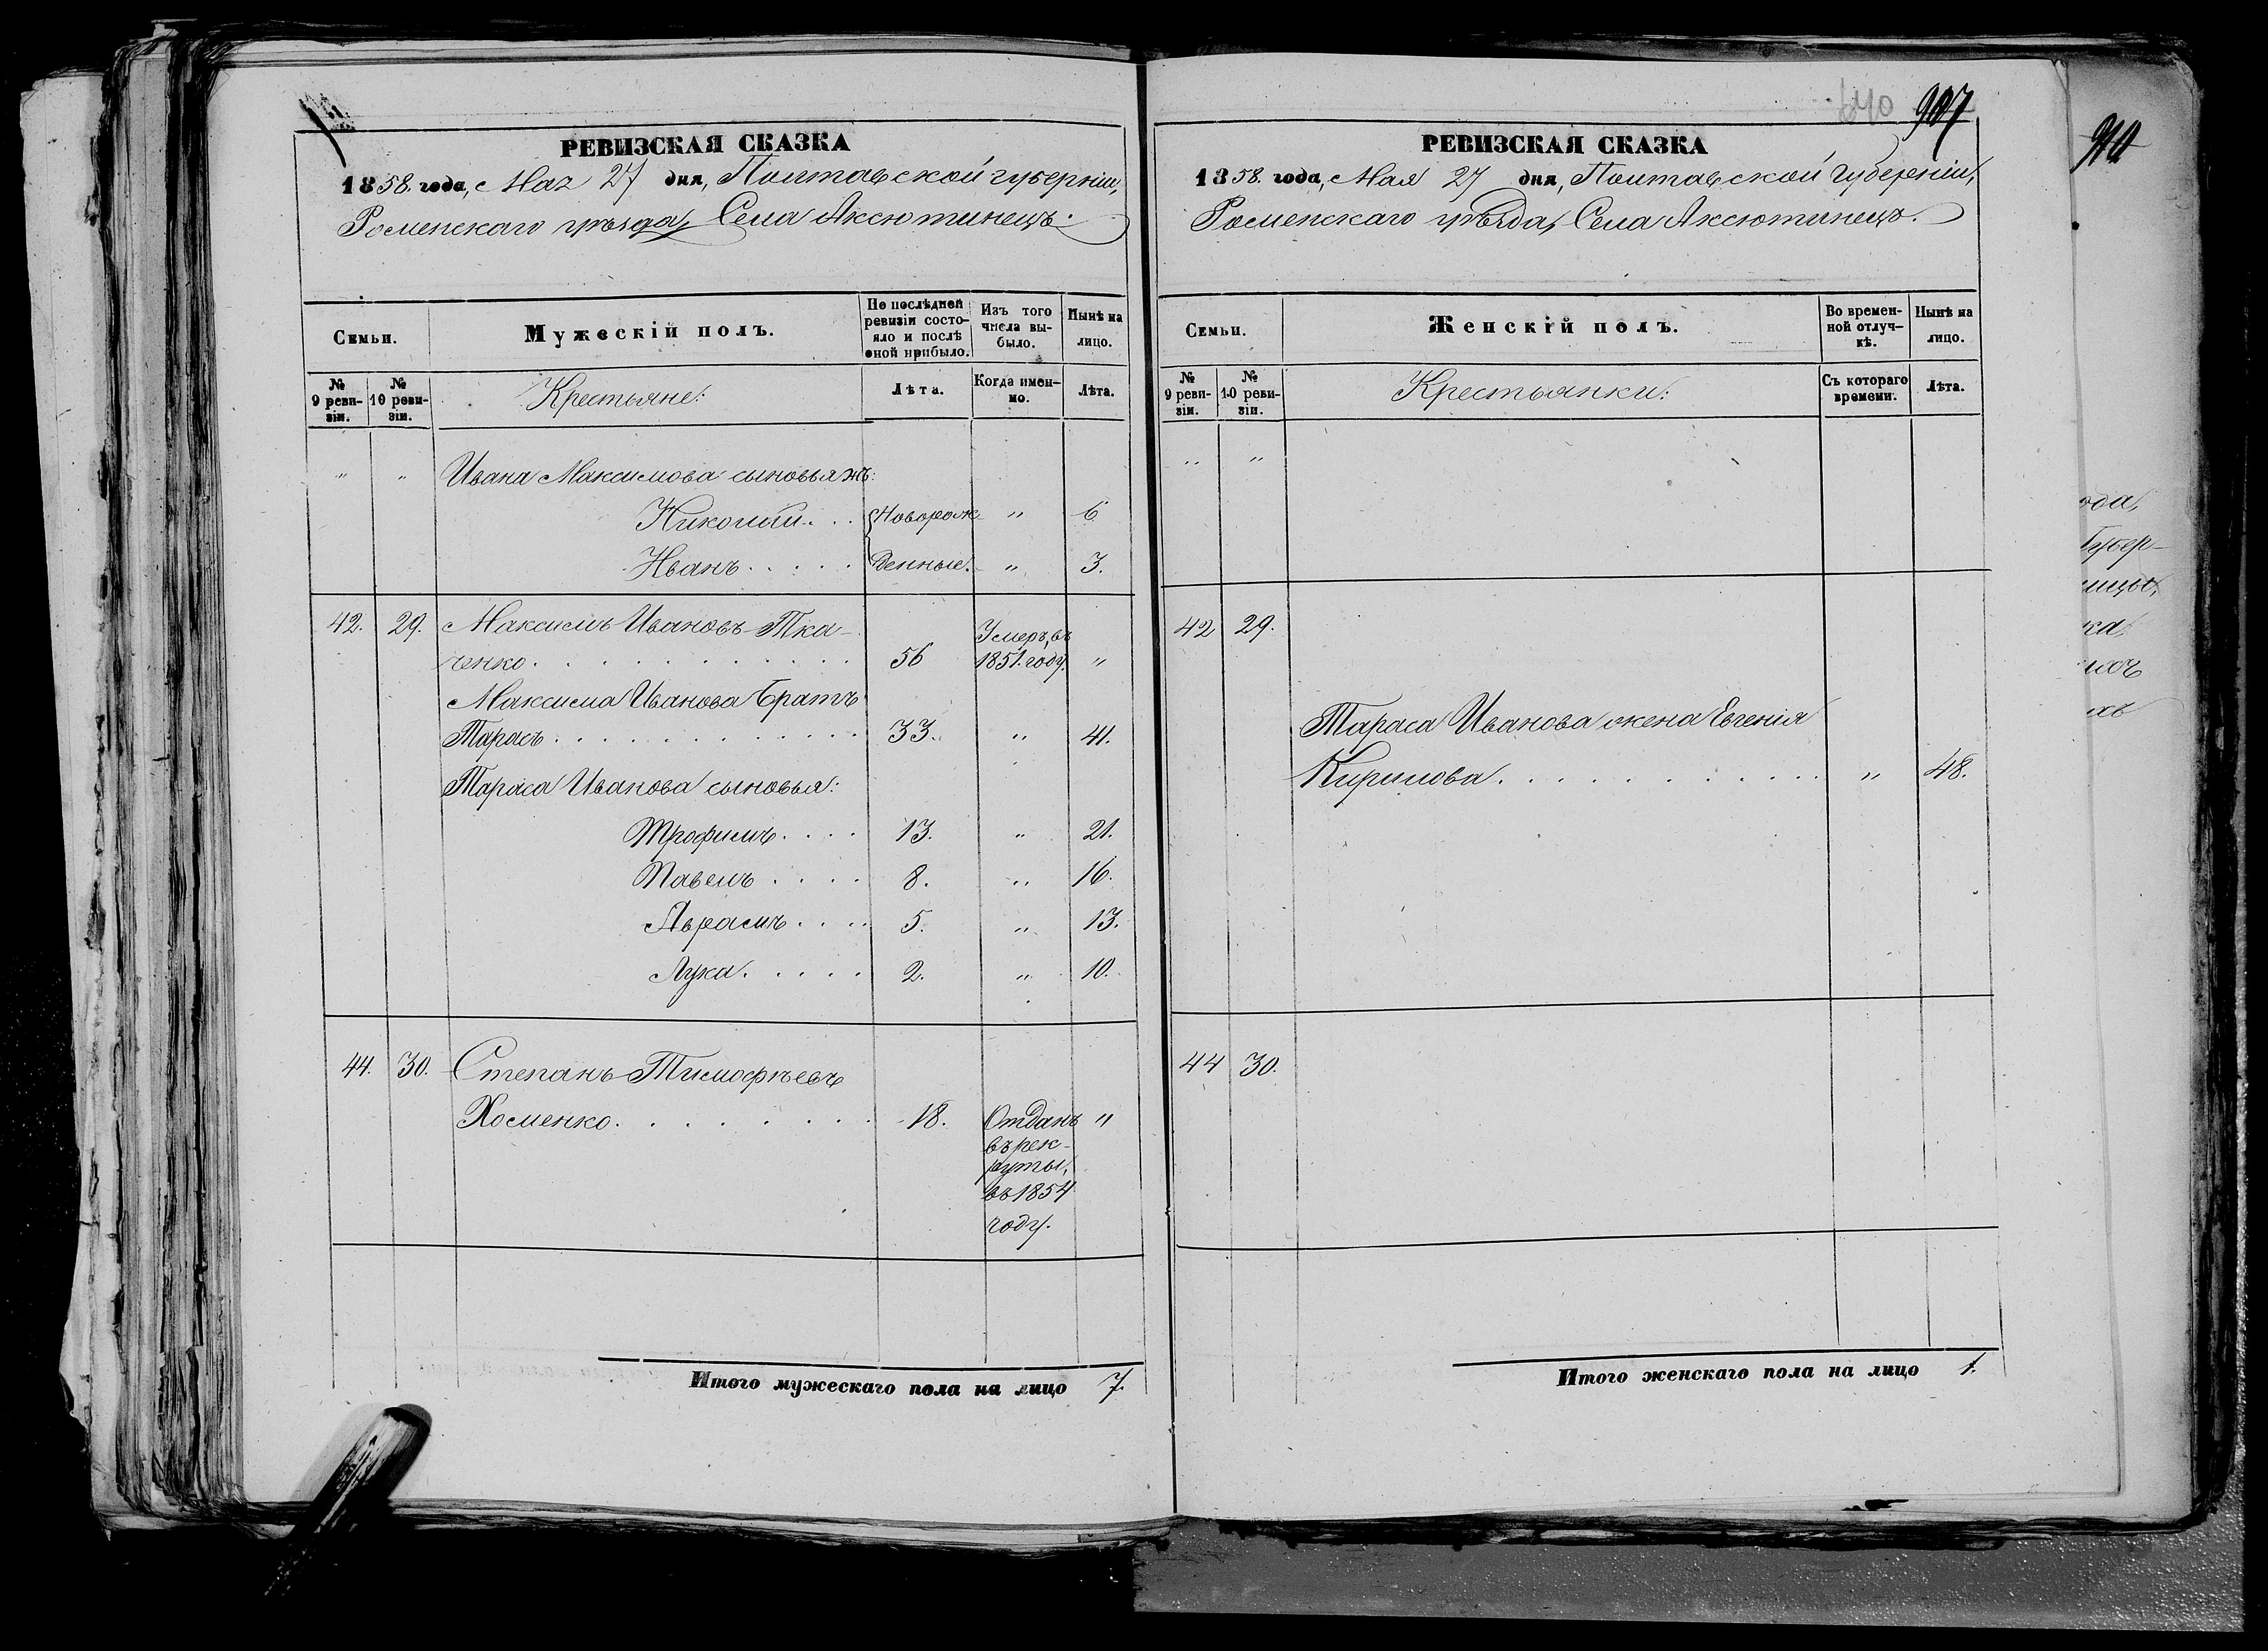 РЕВИЗСКАЯ СКАЗКА
1858. года, Мая 27 дня, Полтавской губерніи,
Роменскаго уѣзда, Села Аксютинецъ.
Семьи.
Мужескій полъ.
По послѣдней ревизіи состояло и послѣ оной прибыло.
Изъ того числа выбыло.
Нынѣ на лицо.
№ 9 ревизіи.
№ 10 ревизіи.
Крестьяне:
Лѣта.
Когда именно.
Лѣта.
" " Ивана Максимова сыновья жъ:
Николай . . . Новорож- " 6
Иванъ . . . . . денные. " 3.
42. 29. Максимъ Ивановъ Тка-
ченко . . . . . . . . . . . 56 Умеръ въ 1851. году. "
Максима Иванова братъ
Тарасъ . . . . . . . . . . . 33. " 41.
Тараса Иванова сыновья:
Трофимъ . . . . 13. " 21.
Павелъ . . . . 8. " 16.
Аврамъ . . . . 5. " 13.
Лука . . . . . 2. " 10.
44. 30. Степанъ Тимофѣевъ
Хоменко . . . . . . . . 18. Отданъ "
въ рек-
руты,
въ 1854
году.
Итого мужескаго пола на лицо 7.
640 907
РЕВИЗСКАЯ СКАЗКА
1858. года, Мая 27 дня, Полтавской губерніи,
Роменскаго уѣзда, Села Аксютинецъ.
Семьи.
Женскій полъ.
Во временной отлучкѣ.
Нынѣ на лицо.
№ 9 ревизіи.
№ 10 ревизіи.
Крестьянки:
Съ котораго времени.
Лѣта.
" "
42 29.
Тараса Иванова жена Евгенія
Кирилова . . . . . . . . . . . " 48.
44 30.
Итого женскаго пола на лицо 1.